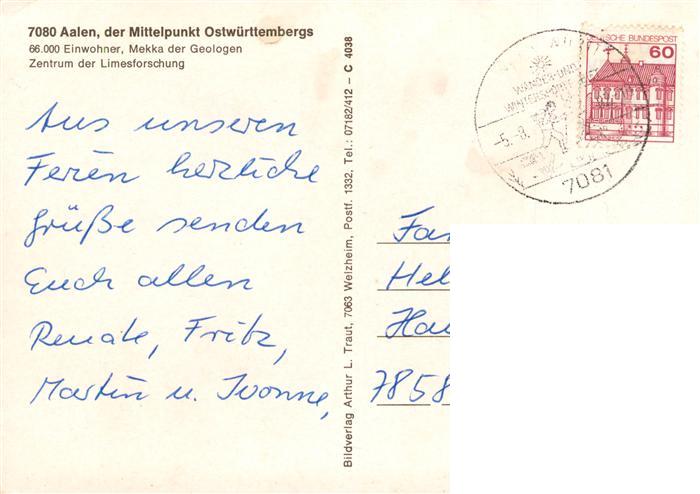 7080 Aalen, der Mittelpunkt Ostwürttembergs
66.000 Einwohner, Mekka der Geologen
Zentrum der Limesforschung
Aus unseren
Ferien herzliche
Grüße senden
Euch allen
Renate, Fritz,
Martin u. Ivonne,
Bildverlag Arthur L. Traut, 7063 Welzheim, Postf. 1332, Tel.: 07182/412 - C 4038
DEUTSCHE BUNDESPOST
60
WANDER- UND
-5.-8.
7081
Fam
Hel
Hau
7858